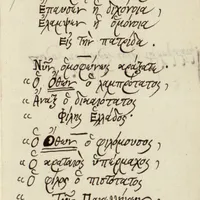 Ἔπαυσεν ἡ διχόνοια,
Ἔλαμψεν ἡ ὁμόνοια
Εἰς τὴν πατρίδα.
Νῦν ὁμοφώνως κράξατε
« Ὁ Ὄθων ὁ λαμπρότατος
« Ἄναξ ὁ δικαιότατος
Φίλης Ἑλλάδος.
« Ὁ Ὄθων ὁ φιλόμουσος,
« Ὁ κραταιὸς ὑπέρμαχος,
« Ὁ φίλος ὁ πιστότατος